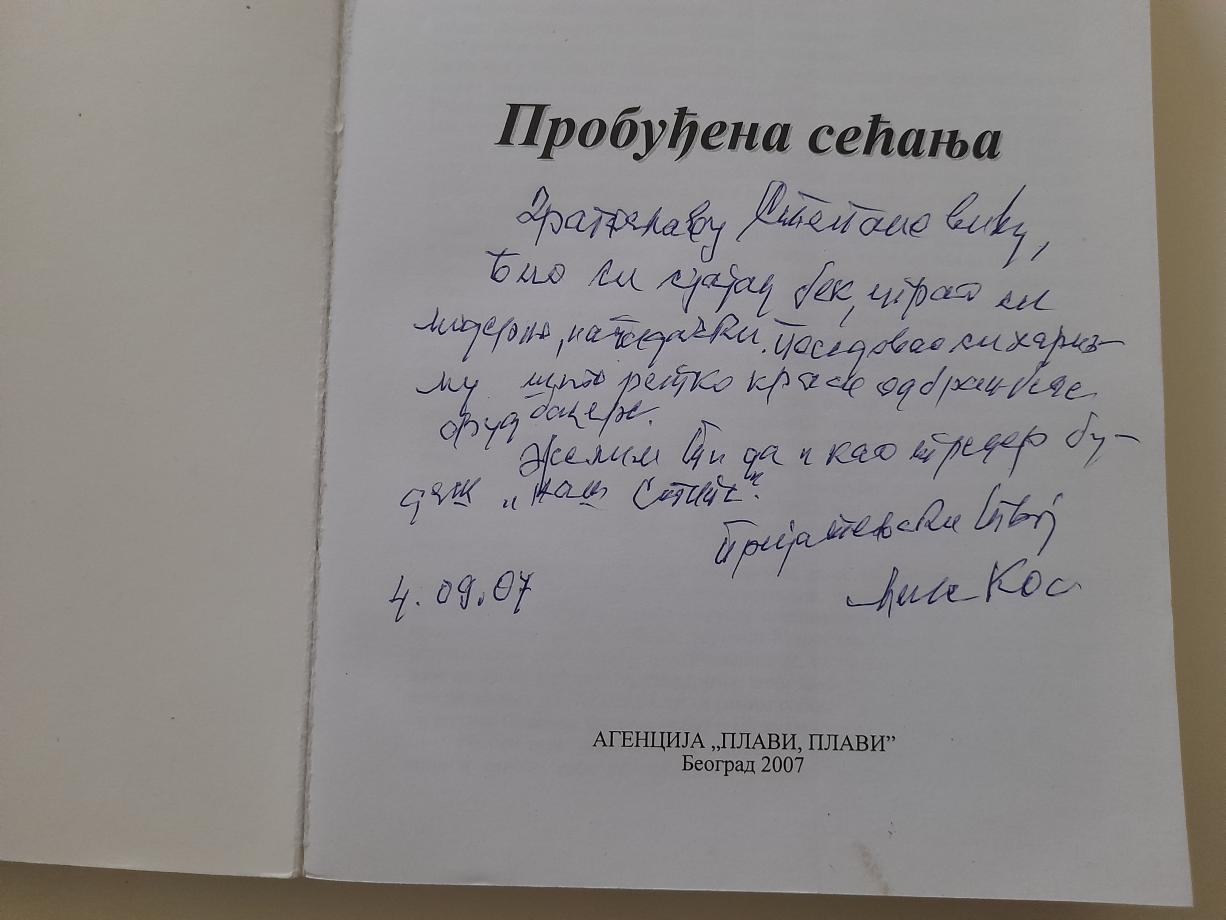 Пробуђена сећања
Степановићу,
Био си сјајан бек, играо си
модерно, нападачки. Поседовао си хариз-
му што ретко краси одбранбене
фудбалере.
Желим Ти да и као тренер бу-
деш „наш
Пријатељски Твој
Кос
4.09.07
АГЕНЦИЈА „ПЛАВИ, ПЛАВИ”
Београд 2007